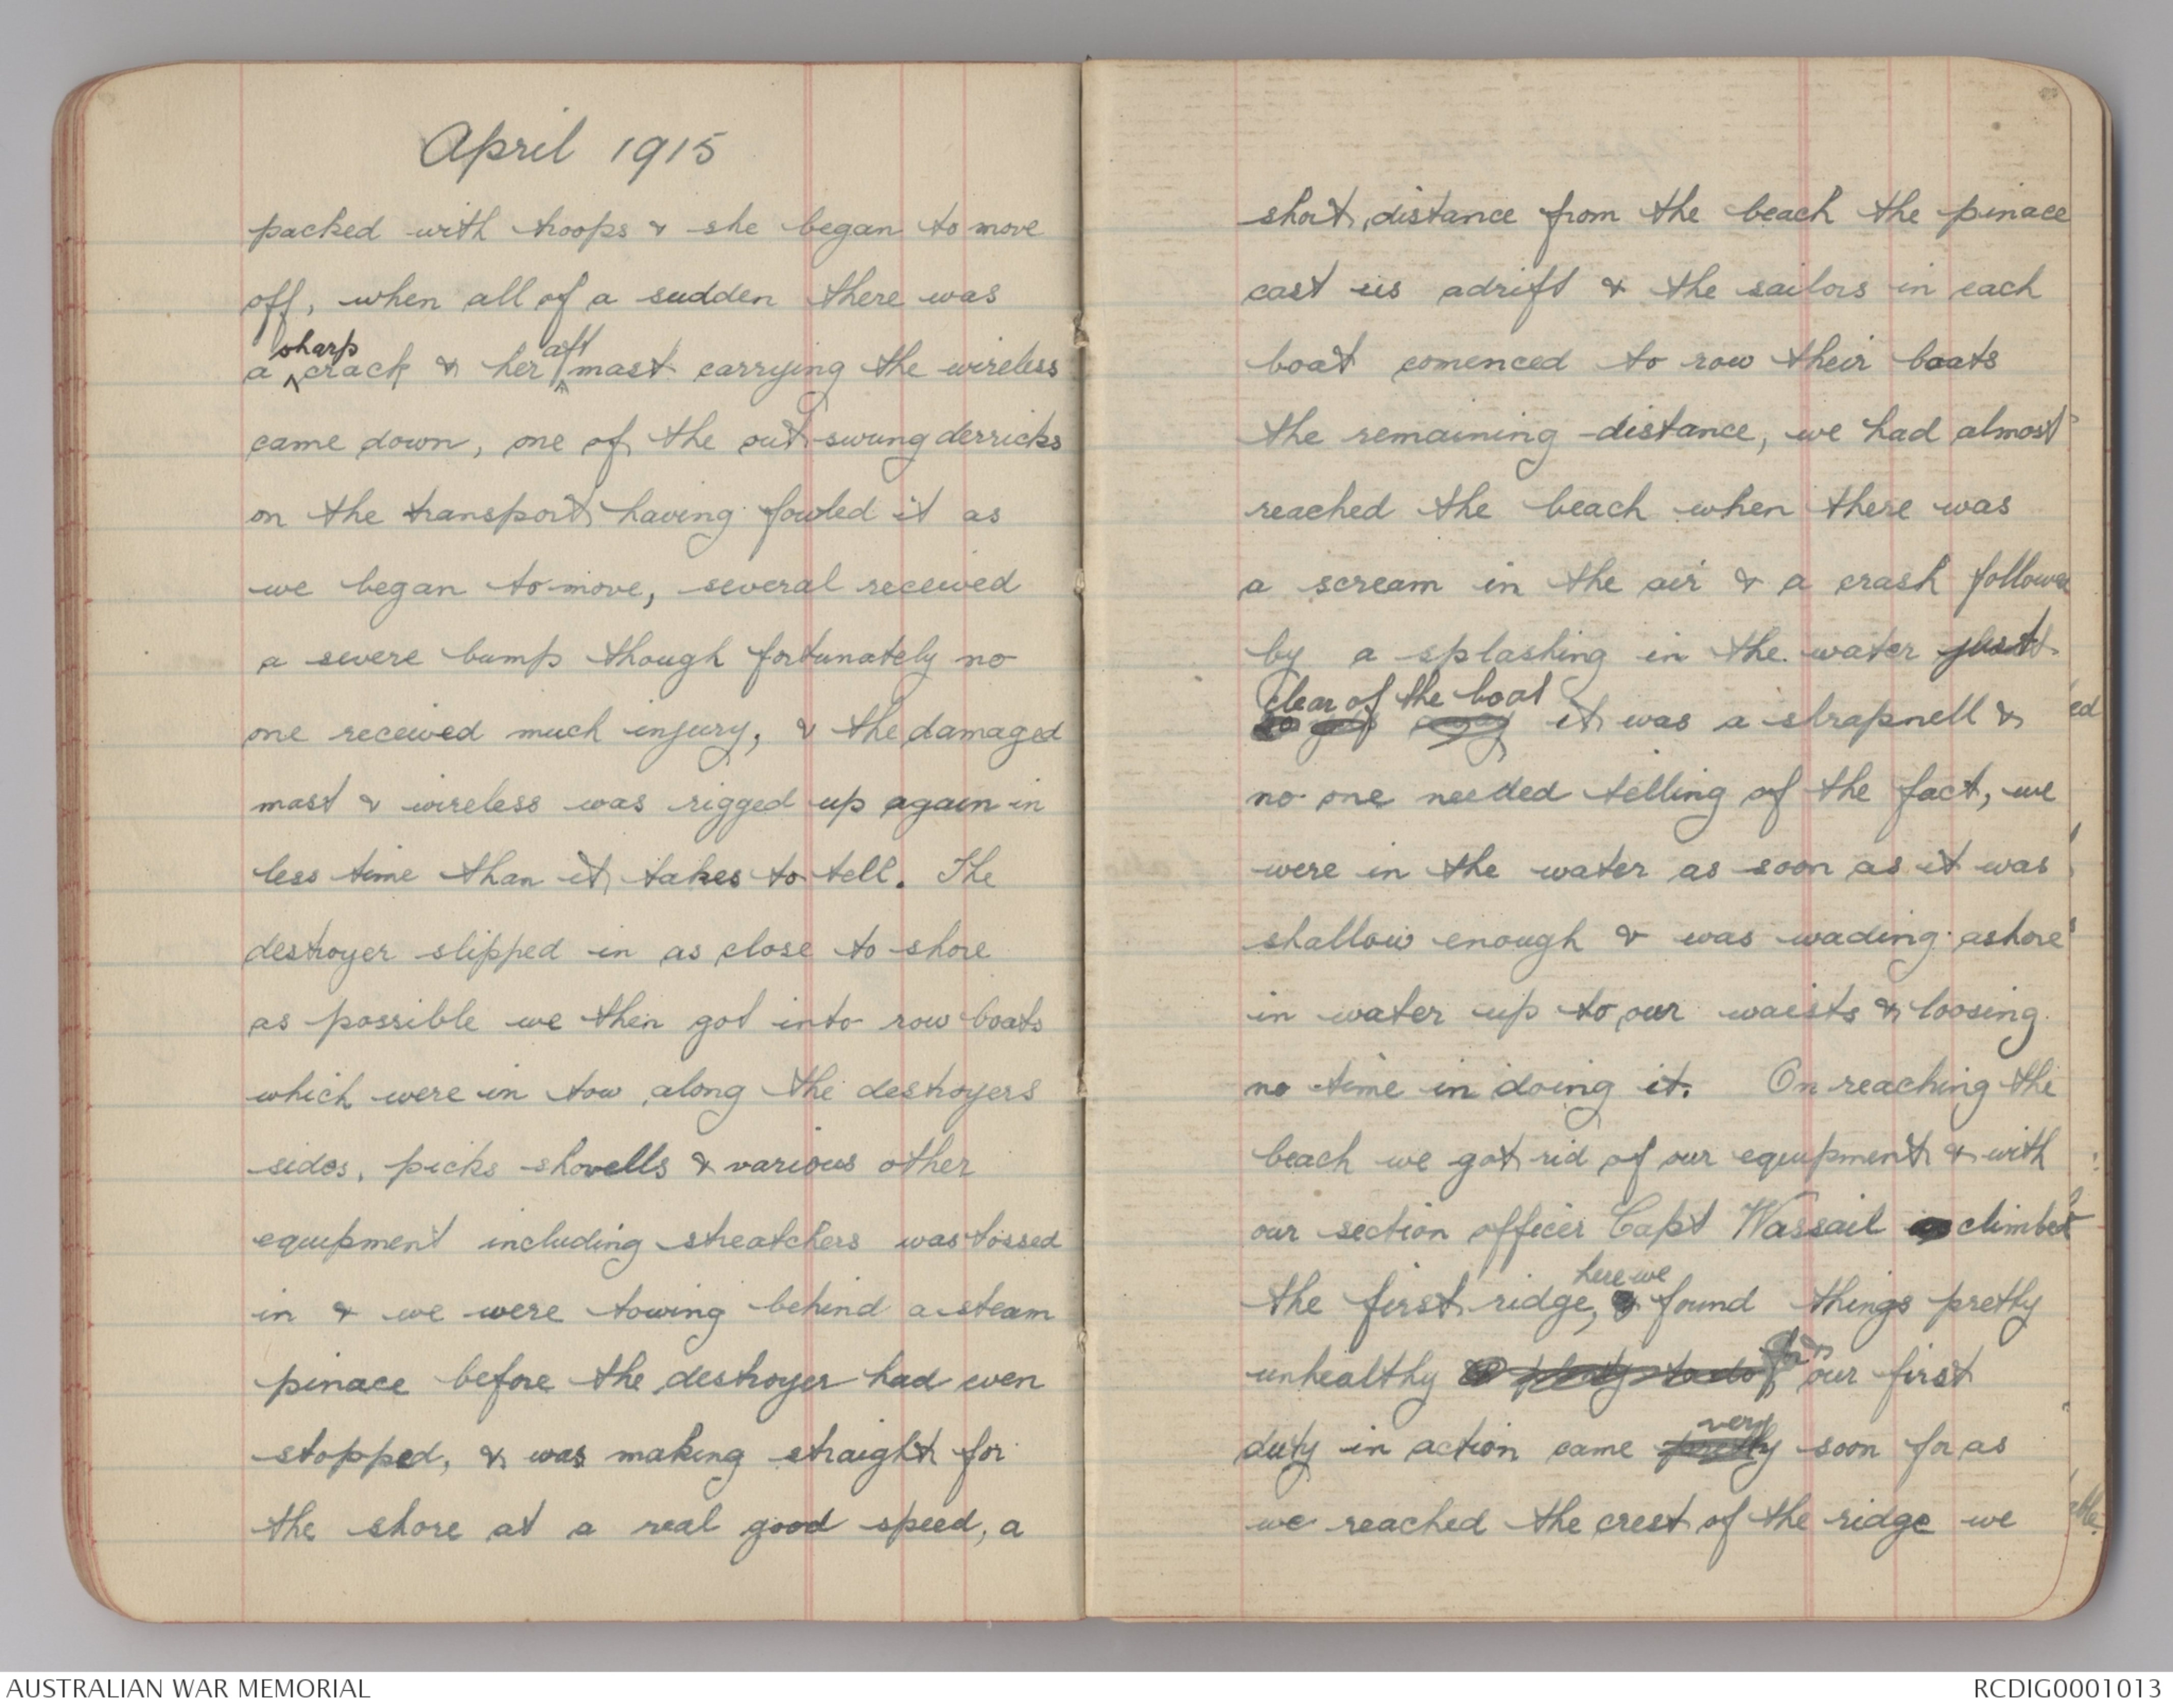 April 1915
packed with troops & she began to move
off, when all of a sudden there was
a sharp crack & her aft mast carrying the wireless
came down, one of the out-swung derricks
on the transport having fowled it as
we began to move, several received
a severe bump though fortunately no
one received much injury, & the damaged
mast & wireless was rigged up again in
less time than it takes to tell. The
destroyer slipped in as close to shore
as possible we then got into row boats
which were in tow along the destroyers
sides, picks shovells & various other
equipment including streatchers was tossed
in & we were towing behind a steam
pinace before the destroyer had even
stopped, & was making straight for
the shore at a real good speed, a
short distance from the beach the pinace
cast us adrift & the sailors in each
boat comenced to row their boats
the remaining distance, we had almost
reached the beach when there was
a scream in the air & a crash followed
by a splashing in the water just
clear of the boat it was a shrapnell &
no one needed telling of the fact, we
were in the water as soon as it was
shallow enough & was wading ashore
in water up to our waists & loosing
no time in doing it. On reaching the
beach we got rid of our equipment & with
our section officer Capt Wassail climbed
the first ridge, here we found things pretty
unhealthy our first
duty in action came very soon for as
we reached the crest of the ridge we
AUSTRALIAN WAR MEMORIAL
RCDIG0001013